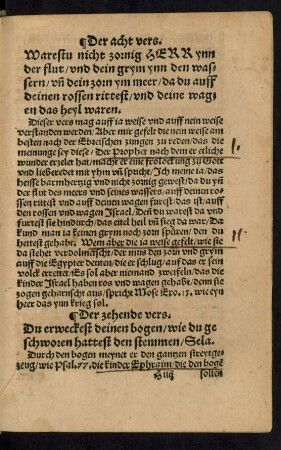 ¶Der acht vers.
Warestu nicht zornig HERR ynn
der flut/vnd dein grym ynn den was-
sern/vñ dein zorn ym meer/da du auff
deinen rossen rittest/vnd deine wag
en das heyl waren.
Dieser vers mag auff ia weise vnd auff nein weise
verstanden werden/Aber mir gefelt die nein weise am
besten nach der Ebreischen zungen zu reden/das die
meinunge sey diese/Der Prophet nach dem er etliche
wunder erzelet hat/machet er eine frolockung zu Gott
vnd lieberedet mit yhm vñ spricht/Ich meine ia/das
heisse barmhertzig vnd nicht zornig gewest/da du yn
den flussen vnd ym meer vnd des meers wassern/auff deinen ros
sen rittest vnd auff deinen wagen furest/das ist/auff
den rossen vnd wagen Israel/Den du warest da vnd
furtest sie hindurch/das eitel heil vñ sieg da war/Da
kund man ia keinen grym noch zorn spüren/den du
hertest gehabt. Wem aber die ia weise gefelt/wie sie
da stehet verdolmetscht/der mus den zorn vnd grym
auff die Egypter deuten/die er schlug/auff das er sein
volck errettet/Es sol aber niemand zweifeln/das die
kinder Israel haben ros vnd wagen gehabt/denn sie
zogen geharnischt aus/spricht Mose Exo. 13. wie eyn
heer das zum krieg sol.
¶Der zehende vers.
Du erweckest deinen bogen/wie du ge
schworen hattest den stemmen/Sela.
Durch den bogen meynet er den gantzen streytge-
zeug/wie Psal. 77. die kinder Ephraim/die den bogē
H iiij sollten